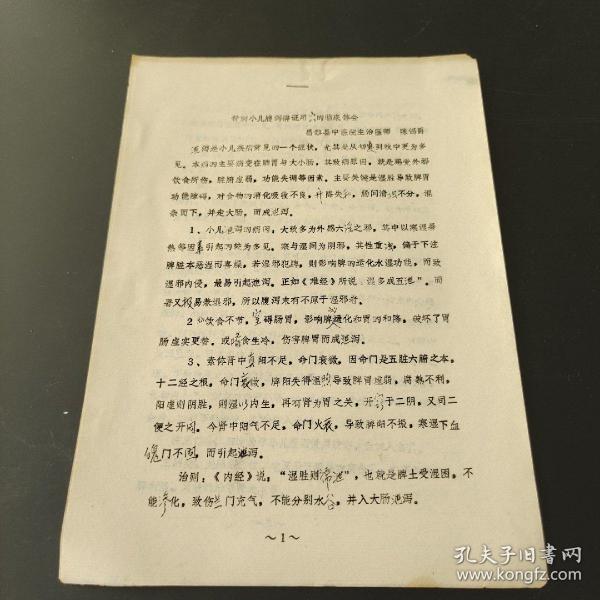 针刺小儿腹泻辨证用穴的临床体会
昌邵县中医院主治医师 陈锡爵
泄泻是小儿疾病常见的一个症状，尤其是从初夏到秋中更为多
见。本病的主要病变在脾胃与大小肠，其致病原因，就是感受外邪
饮食所伤，脏腑虚弱，功能失调等因素。主要关键是湿胜导致脾胃
功能障碍，对食物的消化吸收不良，升降失和，肠间清浊不分，混
杂而下，并走大肠，而成泄泻。
1、小儿泄泻的病因，大致多为外感六淫之邪，其中以寒湿暑
热等因素引起的较为多见。寒与湿同为阴邪，其性重浊，偏于下注
脾脏本恶湿而喜燥，若湿邪犯脾，则影响脾的运化水湿功能，而致
湿邪内侵，最易引起泄泻。正如《难经》所说“湿多成五泄”。而
暑又极易兼湿邪，所以腹泻未有不原于湿邪者。
2、饮食不节，窒碍肠胃，影响脾运化和胃的和降。破坏了胃
肠虚实更替，或嗜食生冷，伤害脾胃而成泄泻。
3、素体肾中真阳不足，命门衰微，因命门是五脏六腑之本。
十二经之根，命门衰微，脾阳失得温煦导致脾胃虚弱，腐熟不利，
阳虚则阴胜，则湿以内生，再有肾为胃之关，开窍于二阴，又司二
便之开阖。今肾中阳气不足，命门火衰，导致脾胡不振，寒湿下血
魄门不固，而引起泄泻。
治则：《内经》说，“湿胜则濡泄”，也就是脾土受湿困，不
能参化，致伤兰门克气，不能分别水谷，并入大肠泄泻。
～1～
孔夫子旧书网
www.kongfz.com